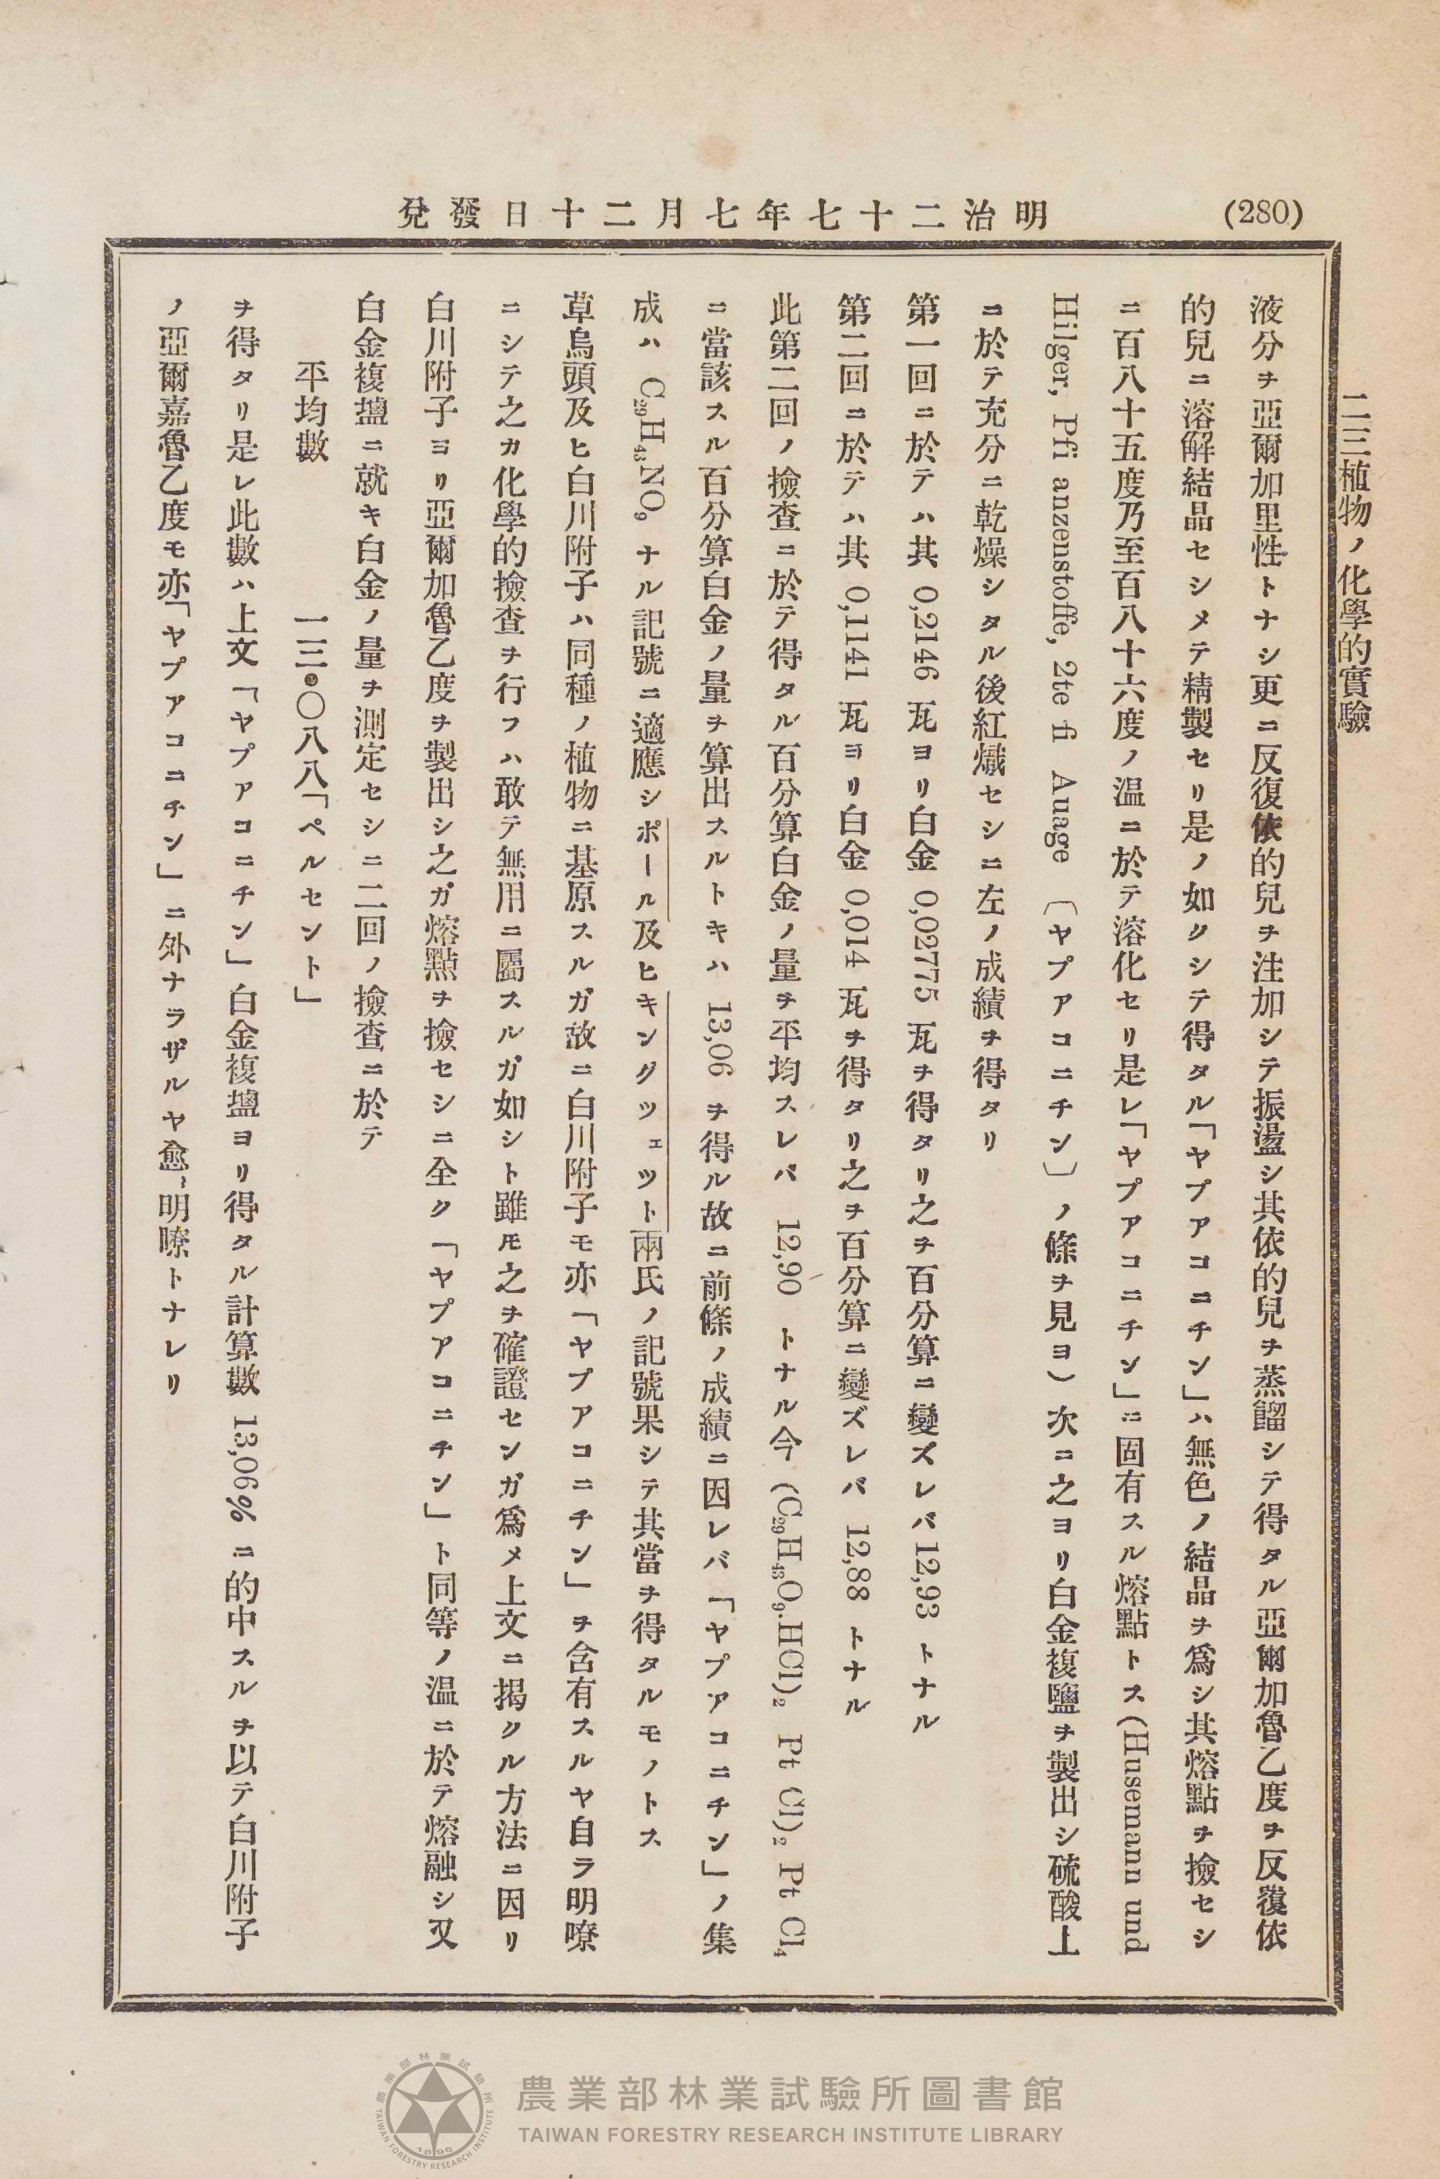 (280)
明治二十七年七月二十日發兌
二三植物ノ化學的實驗
液分ヲ亞爾加里性トナシ更ニ反復依的兒ヲ注加シテ振盪シ其依的兒ヲ蒸餾シテ得タル亞爾加魯乙度ヲ反覆依
的兒ニ溶解結晶セシメテ精製セリ是ノ如クシテ得タル「ヤプアコニチン」ハ無色ノ結晶ヲ爲シ其熔點ヲ撿セシ
ニ百八十五度乃至百八十六度ノ温ニ於テ溶化セリ是レ「ヤプアコニチン」ニ固有スル熔點トス(Husemann und
Hilger, Pfi anzenstoffe, 2te fi Auage 〔ヤプアコニチン〕ノ條ヲ見ヨ)次ニ之ヨリ白金複鹽ヲ製出シ硫酸上
ニ於テ充分ニ乾燥シタル後紅熾セシニ左ノ成績ヲ得タリ
第一回ニ於テハ其 0,2146 瓦ヨリ白金 0,02775 瓦ヲ得タリ之ヲ百分算ニ變ズレバ12,93 トナル
第二回ニ於テハ其 0,1141 瓦ヨリ白金 0,014 瓦ヲ得タリ之ヲ百分算ニ變ズレバ 12,88 トナル
此第二回ノ撿査ニ於テ得タル百分算白金ノ量ヲ平均スレバ 12,90 トナル今 (C₂₉H₄₃O₉.HCl)₂ Pt Cl)₂ Pt Cl₄
ニ當該スル百分算白金ノ量ヲ算出スルトキハ 13,06 ヲ得ル故ニ前條ノ成績ニ因レバ「ヤプアコニチン」ノ集
成ハ C₂₉H₄₃NO₉ ナル記號ニ適應シポール及ヒキングツェット兩氏ノ記號果シテ其當ヲ得タルモノトス
草烏頭及ヒ白川附子ハ同種ノ植物ニ基原スルガ故ニ白川附子モ亦「ヤプアコニチン」ヲ含有スルヤ自ラ明瞭
ニシテ之カ化學的撿査ヲ行フハ敢テ無用ニ屬スルガ如シト雖モ之ヲ確證センガ爲メ上文ニ揭クル方法ニ因リ
白川附子ヨリ亞爾加魯乙度ヲ製出シ之ガ熔點ヲ撿セシニ全ク「ヤプアコニチン」ト同等ノ温ニ於テ熔融シ又
白金複鹽ニ就キ白金ノ量ヲ測定セシニ二回ノ撿査ニ於テ
平均數 一三・〇八八「ペルセント」
ヲ得タリ是レ此數ハ上文「ヤプアコニチン」白金複鹽ヨリ得タル計算數 13,06% ニ的中スルヲ以テ白川附子
ノ亞爾嘉魯乙度モ亦「ヤプアコニチン」ニ外ナラザルヤ愈〻明瞭トナレリ
農業部林業試驗所圖書館
TAIWAN FORESTRY RESEARCH INSTITUTE LIBRARY
農業部林業試驗所
TAIWAN FORESTRY RESEARCH INSTITUTE
1896